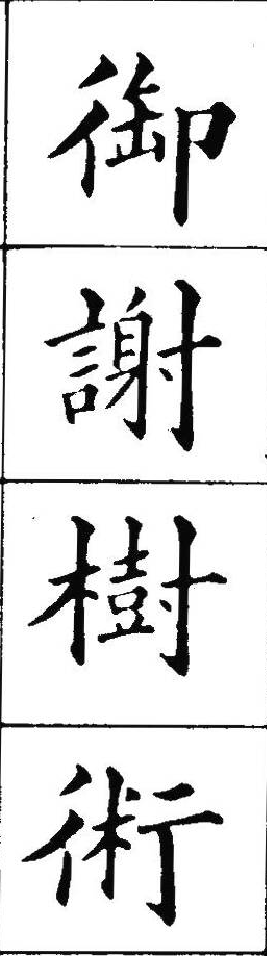 御
謝
樹
術